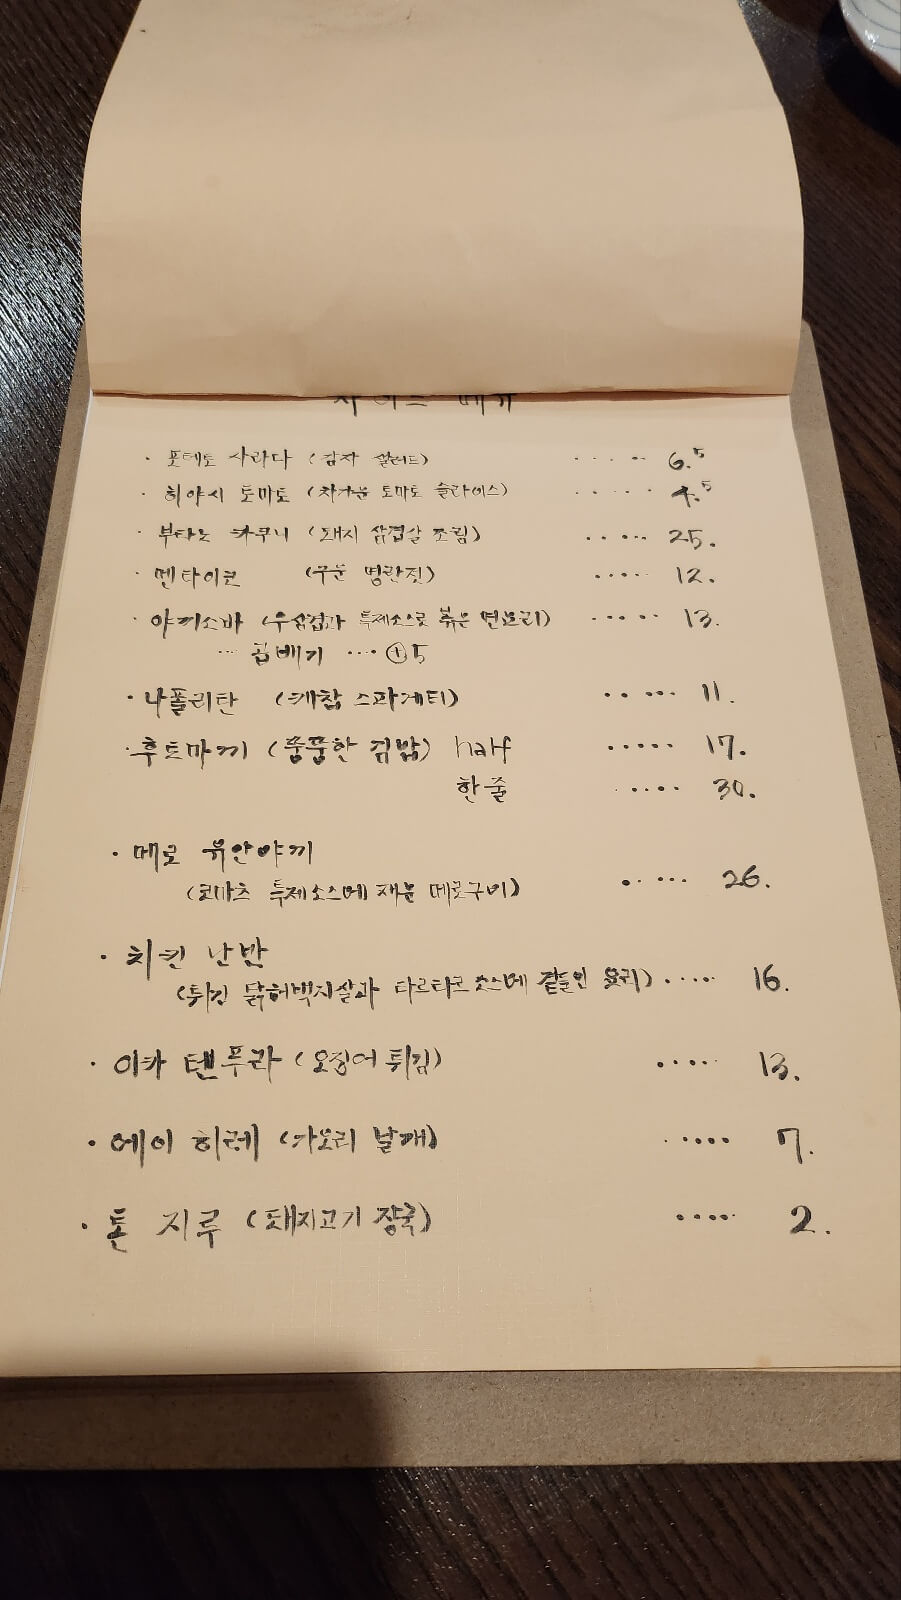 사이드 메뉴
· 포테토 사라다 (감자 샐러드) ····· 6.5
· 히야시 토마토 (차가운 토마토 슬라이스) ····· 4.5
· 부타노 카쿠니 (돼지 삼겹살 조림) ····· 25.
· 멘타이코 (구운 명란젓) ····· 12.
· 야끼소바 (우삼겹과 특제소스로 볶은 면요리) ····· 13.
··· 곱배기 ··· ⊕5
· 나폴리탄 (케찹 스파게티) ····· 11.
· 후토마끼 (뚱뚱한 김밥) half ····· 17.
한줄 ····· 30.
· 메로 유안야끼
(코마츠 특제소스에 재운 메로구이) ····· 26.
· 치킨 난반
(튀긴 닭허벅지살과 타르타르 소스에 곁들인 요리) ····· 16.
· 이카 텐푸라 (오징어 튀김) ····· 13.
· 에이 히레 (가오리 날개) ····· 7.
· 톤 지루 (돼지고기 장국) ····· 2.